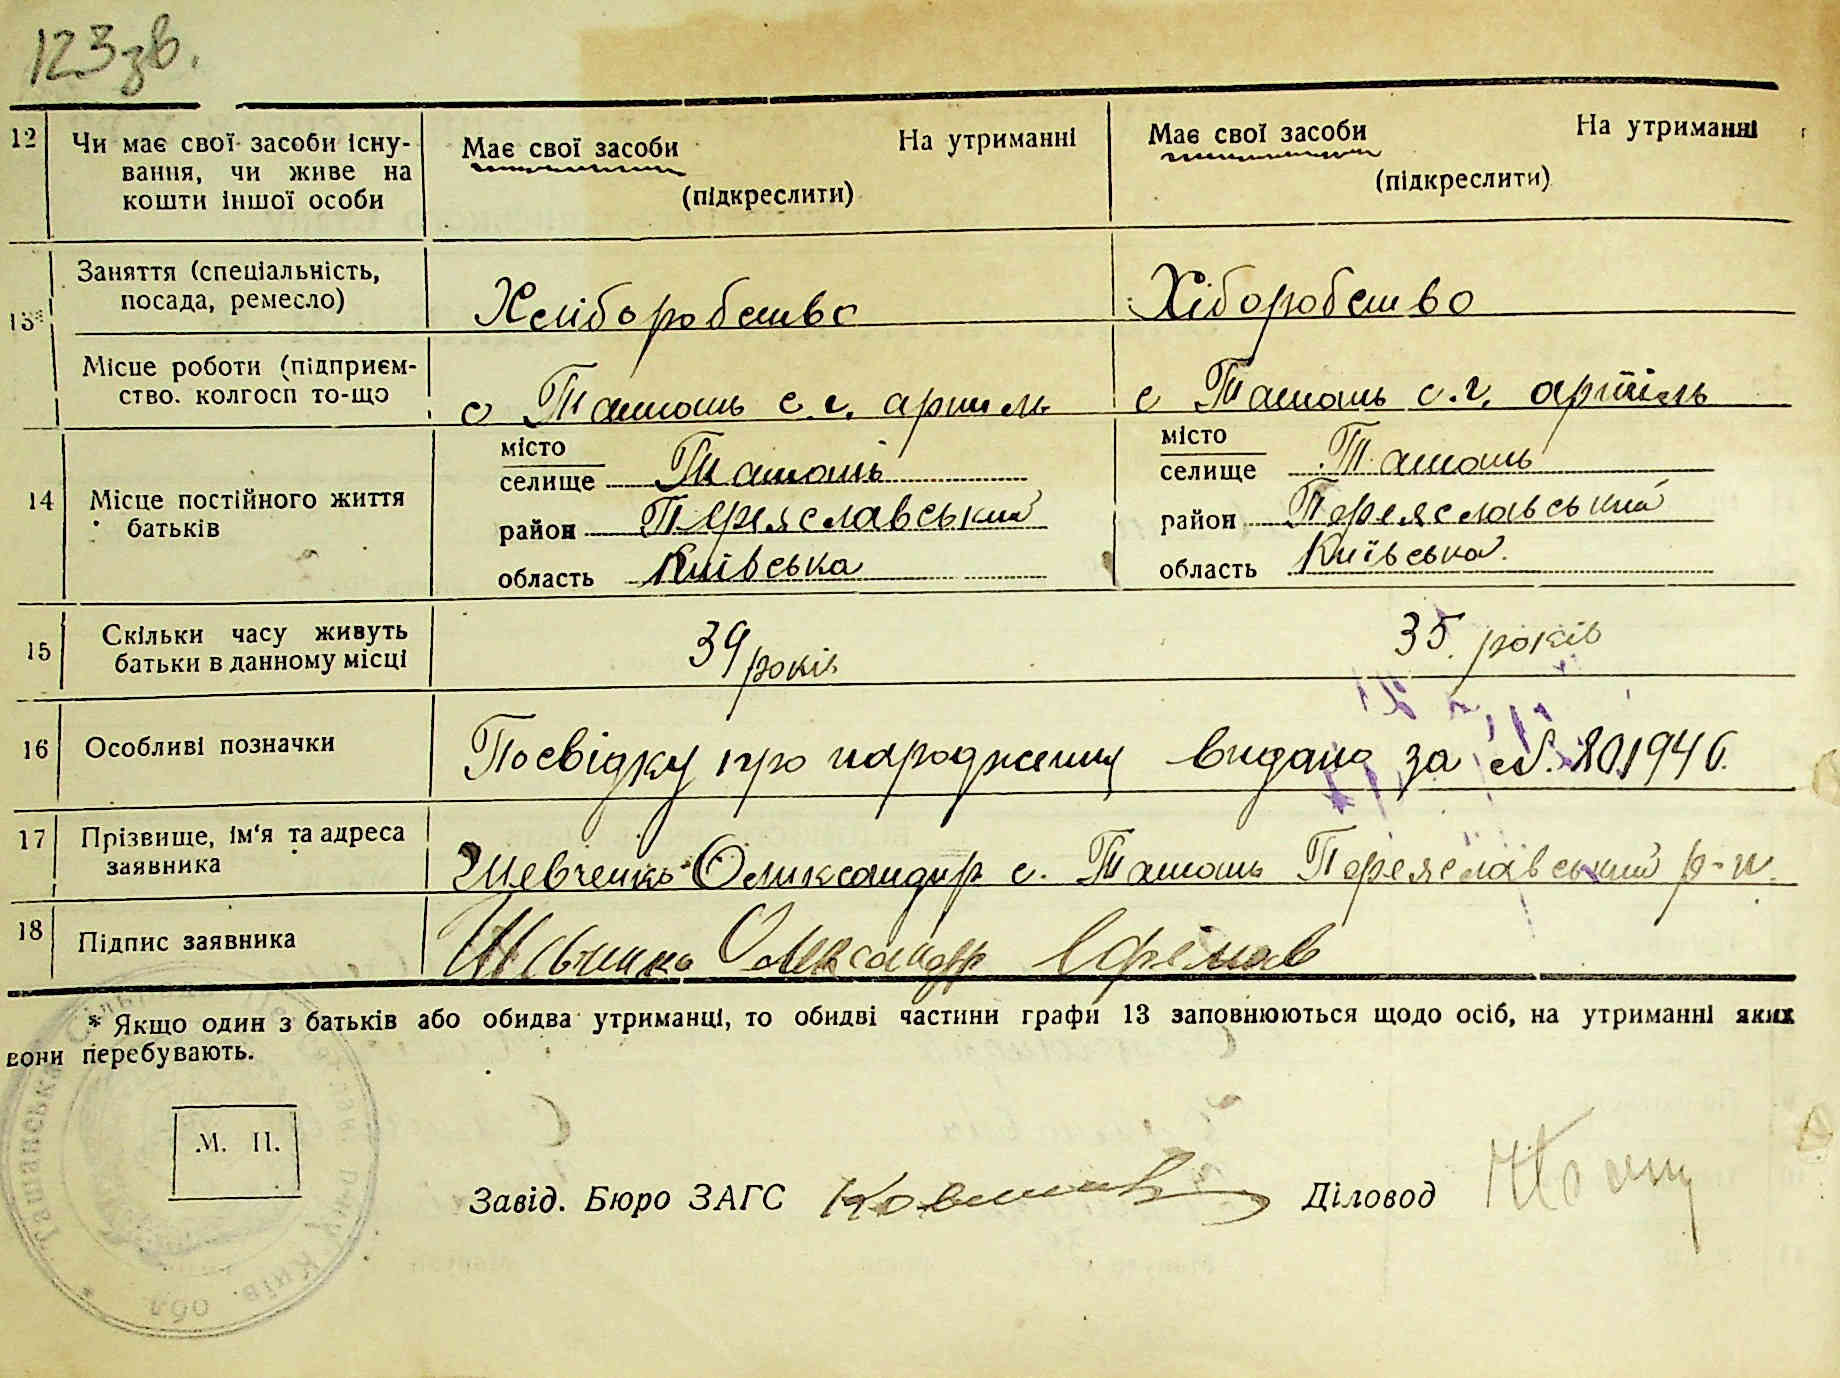 123зв.
12 Чи має свої засоби існу-
вання, чи живе на
кошти іншої особи
Має свої засоби На утриманні
(підкреслити)
Має свої засоби На утриманні
(підкреслити)
13*
Заняття (спеціальність,
посада, ремесло)
Хліборобство
Хіборобство
Місце роботи (підприєм-
ство. колгосп то-що
с Ташань с.г. артіль
с Ташань с.г. артіль
14 Місце постійного життя
батьків
місто
селище Ташань
район Переяславський
область Київська
місто
селище Ташань
район Переяславський
область Київська
15 Скільки часу живуть
батьки в данному місці
39 років
35 років
16 Особливі позначки
Посвідку про народження видано за №. 801946
17 Прізвище, ім'я та адреса
заявника
Шевченко Олександр с. Ташань Переяславський р-н.
18 Підпис заявника
Олександр
* Якщо один з батьків або обидва утриманці, то обидві частини графи 13 заповнюються щодо осіб, на утриманні яких
вони перебувають.
М. П.
Завід. Бюро ЗАГС
Діловод
Ташанська
Київ. обл.